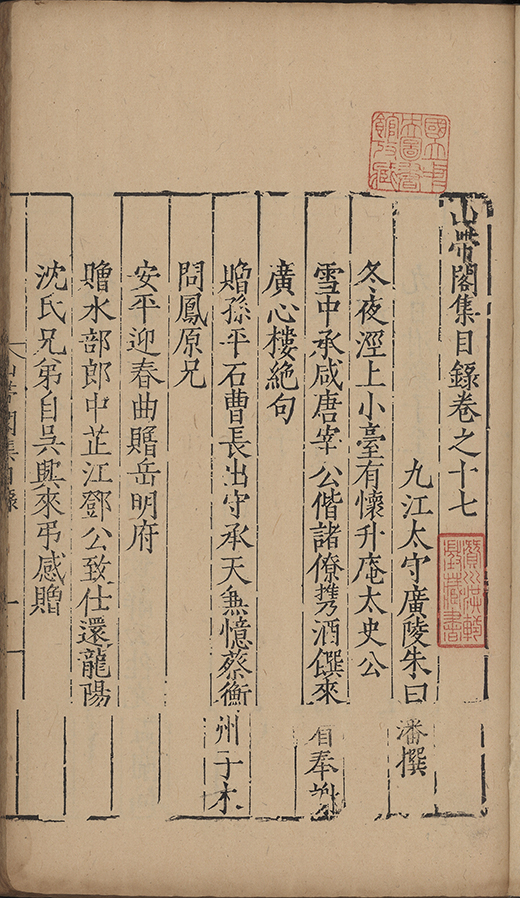 國立中央圖書館收藏
山帶閣集目錄卷之十七
九江太守廣陵朱曰潘撰
冬夜涇上小臺有懷升庵太史公
雪中承咸唐宰公偕諸僚携酒饌來奉謝
廣心樓絕句
贈孫平石曹長出守承天兼憶蔡衡州子木
問鳳原兄
安平迎春曲贈岳明府
贈水部郎中芷江鄧公致仕還龍陽
沈氏兄弟自吳興來弔感贈
山帶閣集目錄 一